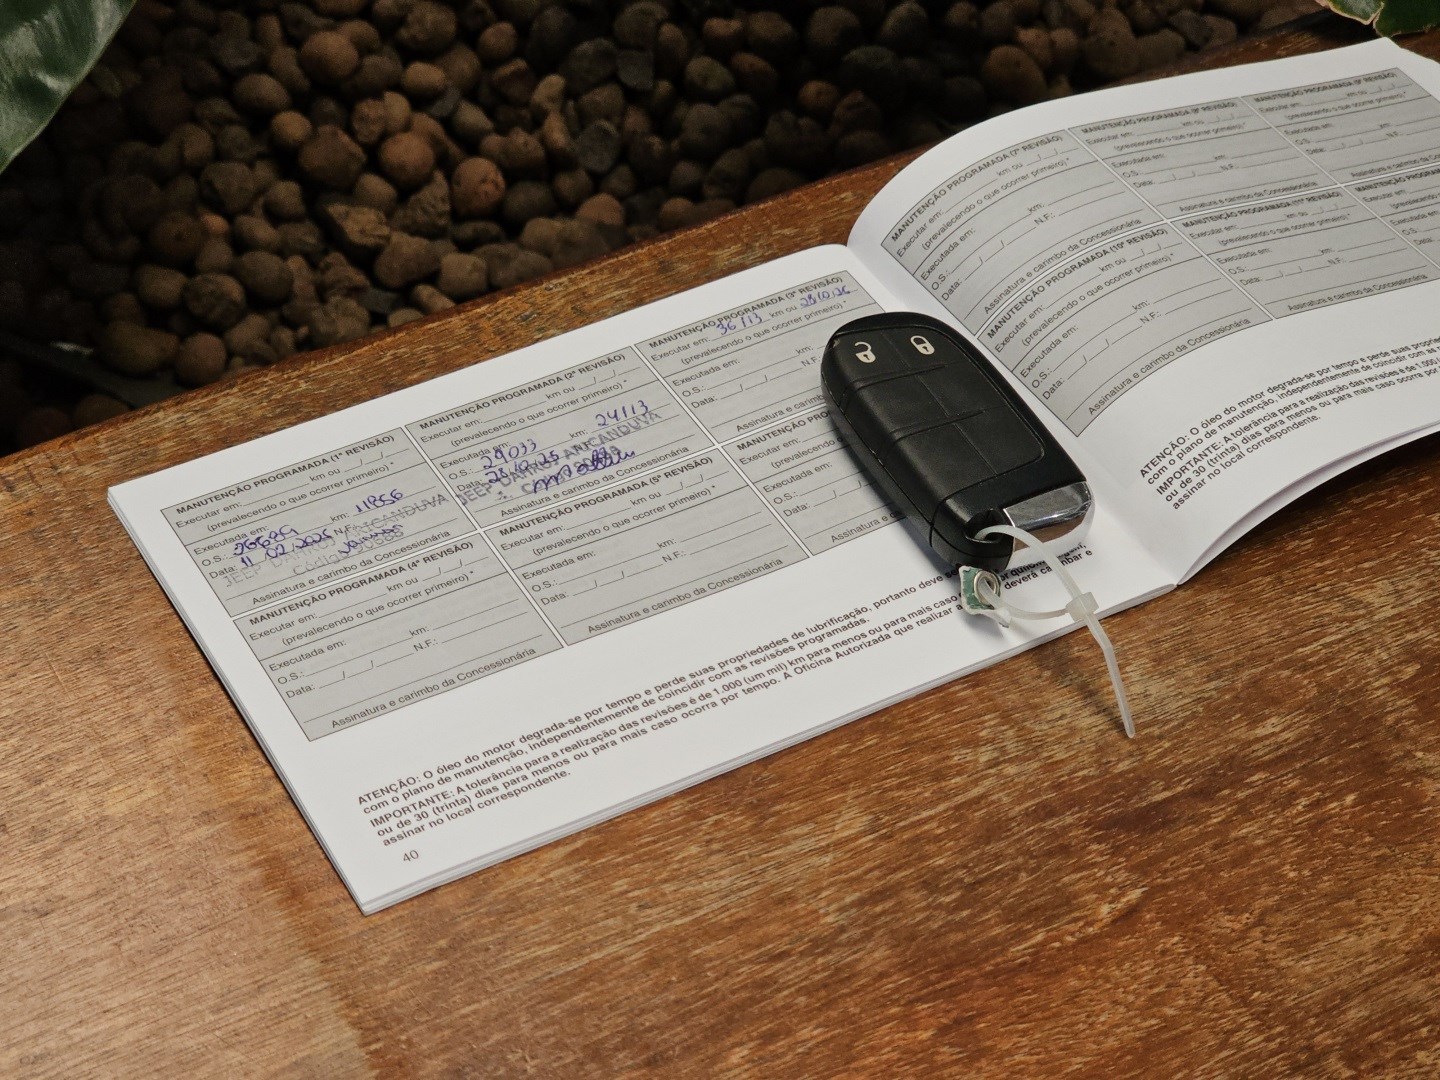 MANUTENÇÃO PROGRAMADA (1ª REVISÃO)
Executar em: km ou __/__/__
(prevalecendo o que ocorrer primeiro) *
Executada em: km: 11856
O.S.: N.F.:
Data: 11 02 2025
JEEP ARICANDUVA
Assinatura e carimbo da Concessionária
MANUTENÇÃO PROGRAMADA (2ª REVISÃO)
Executar em: km ou __/__/__
(prevalecendo o que ocorrer primeiro) *
Executada em: km: 24113
O.S.: 29033
Data: 28.10.25
JEEP ARICANDUVA
Assinatura e carimbo da Concessionária
MANUTENÇÃO PROGRAMADA (3ª REVISÃO)
Executar em: 36113 km ou 28/10/26
(prevalecendo o que ocorrer primeiro) *
Executada em: km:
O.S.:
Data:
Assinatura e carimbo
MANUTENÇÃO PROGRAMADA (4ª REVISÃO)
Executar em: km ou __/__/__
(prevalecendo o que ocorrer primeiro) *
Executada em: km:
O.S.: N.F.:
Data: __/__/__
Assinatura e carimbo da Concessionária
MANUTENÇÃO PROGRAMADA (5ª REVISÃO)
Executar em: km ou __/__/__
(prevalecendo o que ocorrer primeiro) *
Executada em: km:
O.S.: N.F.:
Data: __/__/__
Assinatura e carimbo da Concessionária
MANUTENÇÃO
Executar em:
(prevalecendo
Executada em:
O.S.:
Data:
Assinatura e
ATENÇÃO: O óleo do motor degrada-se por tempo e perde suas propriedades de lubrificação, portanto deve
com o plano de manutenção, independentemente de coincidir com as revisões programadas.
IMPORTANTE: A tolerância para a realização das revisões é de 1.000 (um mil) km para menos ou para mais caso
ou de 30 (trinta) dias para menos ou para mais caso ocorra por tempo. A Oficina Autorizada que realizar a deverá carimbar e
assinar no local correspondente.
40
MANUTENÇÃO PROGRAMADA (7ª REVISÃO)
Executar em: km ou __/__/__
(prevalecendo o que ocorrer primeiro) *
Executada em: km:
O.S.: N.F.:
Data: __/__/__
Assinatura e carimbo da Concessionária
MANUTENÇÃO PROGRAMADA (8ª REVISÃO)
Executar em: km ou __/__/__
(prevalecendo o que ocorrer primeiro) *
Executada em: km:
O.S.: N.F.:
Data: __/__/__
Assinatura e carimbo da Concessionária
MANUTENÇÃO PROGRAMADA (9ª REVISÃO)
Executar em: km ou __/__/__
(prevalecendo o que ocorrer primeiro) *
Executada em: km:
O.S.: N.F.:
Data: __/__/__
Assinatura e carimbo da
MANUTENÇÃO PROGRAMADA (10ª REVISÃO)
Executar em: km ou __/__/__
(prevalecendo o que ocorrer primeiro) *
Executada em: km:
O.S.: N.F.:
Data: __/__/__
Assinatura e carimbo da Concessionária
MANUTENÇÃO PROGRAMADA (11ª REVISÃO)
Executar em: km ou __/__/__
(prevalecendo o que ocorrer primeiro) *
Executada em: km:
O.S.: N.F.:
Data: __/__/__
Assinatura e carimbo da Concessionária
MANUTENÇÃO
Executar em:
(prevalecendo
Executada em:
O.S.:
Data:
ATENÇÃO: O óleo do motor degrada-se por tempo e perde suas
com o plano de manutenção, independentemente de coincidir com as
IMPORTANTE: A tolerância para a realização das revisões é de 1.000
ou de 30 (trinta) dias para menos ou para mais caso ocorra por
assinar no local correspondente.